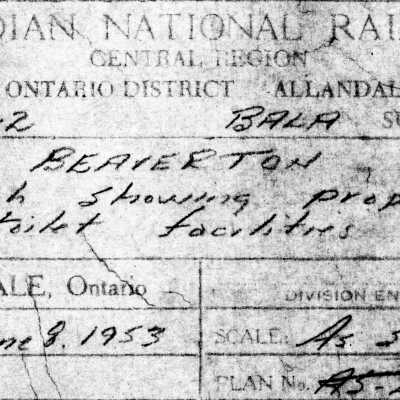 DIAN NATIONAL RAI
CENTRAL REGION
ONTARIO DISTRICT ALLANDAL
-2 BALA SU
BEAVERTON
h showing prop
toilet facilities
ALE, Ontario
DIVISION EN
ne 8, 1953 SCALE: As S
PLAN No. AS-